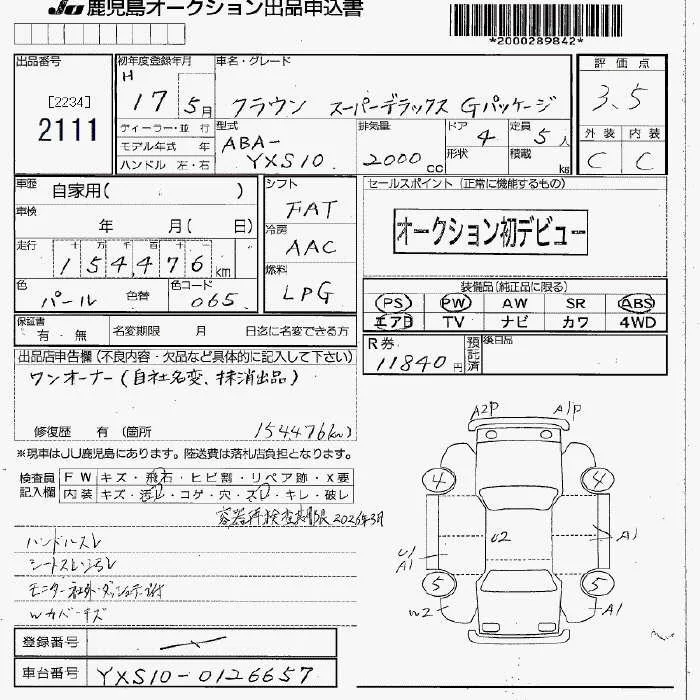 JU 鹿児島オークション出品申込書
*2000289842*
出品番号
[2234]
2111
初年度登録年月
H 17 5月
車名・グレード
クラウン スーパーデラックス Gパッケージ
評価点
3.5
外装 内装
C C
ディーラー・並 行
モデル年式 年
ハンドル 左・右
型式
ABA-
YXS10
排気量
2000cc
ドア 4
形状
定員 5人
積載 kg
車歴 自家用( )
車検 年 月( 日)
走行 十 万 千 百 十 一
154,476km
色 パール 色替
色コード 065
シフト
FAT
冷房
AAC
燃料
LPG
セールスポイント (正常に機能するもの)
オークション初デビュー
装備品(純正品に限る)
PS PW AW SR ABS
エアB TV ナビ カワ 4WD
保証書
有・無
名変期限 月 日迄に名変できる方
R券
11840円
預託済
後日品
出品店申告欄(不良内容・欠品など具体的に記入して下さい)
ワンオーナー(自社名変、抹消出品)
修復歴 有 (箇所
154476km)
※現車はJU鹿児島にあります。陸送費は落札店負担となります。
検査員
記入欄
FW キズ・飛石・ヒビ割・リペア跡・X要
内装 キズ・汚レ・コゲ・穴・スレ・キレ・破レ
容器再検査期限 2026年3月
ハンドルスレ
シートスレ汚レ
モニター社外・ダッシュ
Wカバーキズ
A2P A1P
4 4
U2
A1
U1
A1
5 5
W2 A1
登録番号
車台番号 YXS10-0126657